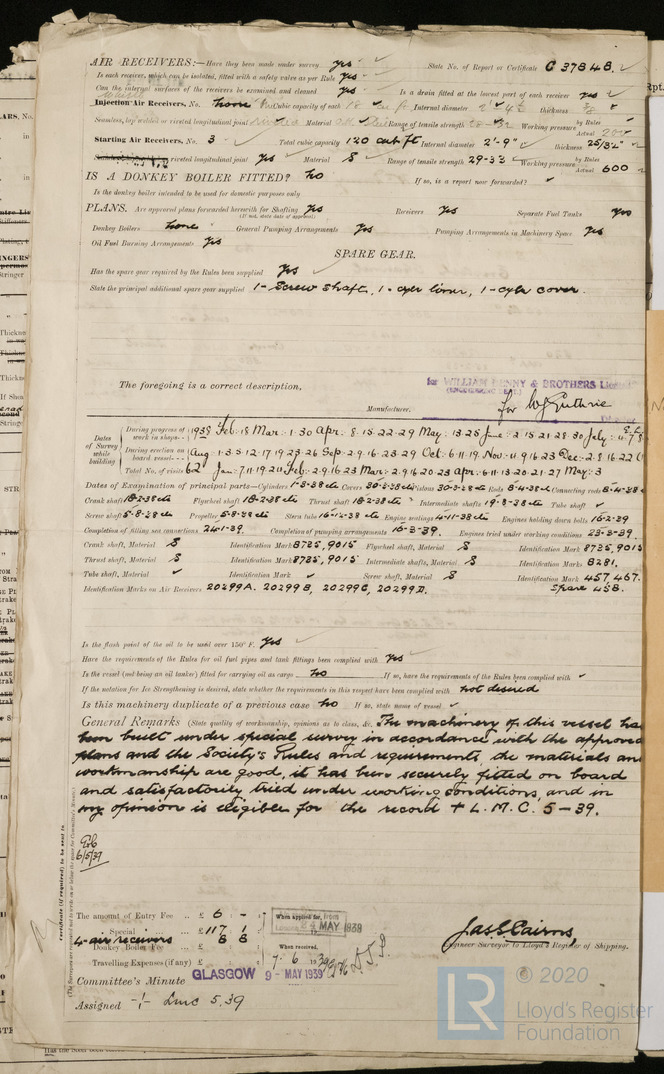 AIR RECEIVERS:—Have they been made under survey yes State No. of Report or Certificate C 37848.
Is each receiver, which can be isolated, fitted with a safety valve as per Rule yes
Can the internal surfaces of the receivers be examined and cleaned yes Is a drain fitted at the lowest part of each receiver yes
Whistle
Injection Air Receivers, No. Cubic capacity of each Internal diameter thickness
Seamless, lap welded or riveted longitudinal joint Material Range of tensile strength Working pressure by Rules Actual
Starting Air Receivers, No. 3 Total cubic capacity 120 cub ft Internal diameter 2'-9" thickness 25/32"
riveted longitudinal joint yes Material S Range of tensile strength 29-33 Working pressure by Rules Actual 600
IS A DONKEY BOILER FITTED? no If so, is a report now forwarded?
Is the donkey boiler intended to be used for domestic purposes only
PLANS. Are approved plans forwarded herewith for Shafting yes Receivers yes Separate Fuel Tanks yes
(If not, state date of approval)
Donkey Boilers none General Pumping Arrangements yes Pumping Arrangements in Machinery Space yes
Oil Fuel Burning Arrangements yes
SPARE GEAR.
Has the spare gear required by the Rules been supplied yes
State the principal additional spare gear supplied 1-Screw shaft, 1-cyler liner, 1-cyler cover.
The foregoing is a correct description,
for WILLIAM DENNY & BROTHERS
Manufacturer. for W Guthrie
Dates of Survey while building
During progress of work in shops-- 1938 Feb. 18 Mar. 1. 30 Apr. 8. 15. 22. 29 May. 13. 25 June. 2. 15. 21. 28. 30 July.
During erection on board vessel--- Aug 1. 3. 5. 12. 17. 19. 23. 26 Sep. 2. 9. 16. 23. 29 Oct. 6. 11. 19 Nov. 4. 9. 16. 23 Dec. 2. 8. 16. 22
Total No. of visits 62 Jan. 7. 11. 19. 24 Feb. 2. 9. 16. 23 Mar. 2. 9. 16. 20. 23 Apr. 6. 11. 13. 20. 21. 27 May. 3
Dates of Examination of principal parts—Cylinders 1-3-38 etc Covers 30-3-38 etc Pistons 30-3-38 etc Rods 8-4-38 etc Connecting rods 8-4-38
Crank shaft 18-2-38 etc Flywheel shaft 18-2-38 etc Thrust shaft 18-2-38 etc Intermediate shafts 19-8-38 etc Tube shaft
Screw shaft 5-8-38 etc Propeller 5-8-38 etc Stern tube 16-12-38 etc Engine seatings 4-11-38 etc Engines holding down bolts 16-2-39
Completion of fitting sea connections 24-1-39. Completion of pumping arrangements 16-3-39. Engines tried under working conditions 23-3-39.
Crank shaft, Material S Identification Mark 8735, 9015 Flywheel shaft, Material S Identification Mark 8735, 9015
Thrust shaft, Material S Identification Mark 8735, 9015 Intermediate shafts, Material S Identification Marks 8281.
Tube shaft, Material Identification Mark Screw shaft, Material S Identification Mark 457, 467.
Identification Marks on Air Receivers 20299A. 20299B, 20299C, 20299D. Spare 458.
Is the flash point of the oil to be used over 150° F. yes
Have the requirements of the Rules for oil fuel pipes and tank fittings been complied with yes
Is the vessel (not being an oil tanker) fitted for carrying oil as cargo no If so, have the requirements of the Rules been complied with
If the notation for Ice Strengthening is desired, state whether the requirements in this respect have been complied with not desired
Is this machinery duplicate of a previous case no If so, state name of vessel
General Remarks (State quality of workmanship, opinions as to class, &c. The machinery of this vessel has
been built under special survey in accordance with the approved
plans and the Society's Rules and requirements, the materials and
workmanship are good, it has been securely fitted on board
and satisfactorily tried under working conditions, and in
my opinion is eligible for the record + L.M.C. 5-39.
6/5/39
Certificate (if required) to be sent to
The amount of Entry Fee .. £ 6 : - :
Special ... £ 117 : 1 :
4-air receivers 8 8
Donkey Boiler Fee ... £
Travelling Expenses (if any) £
When applied for,
MAY 1939
When received,
7. 6. 1939
Jas S Cairns
Engineer Surveyor to Lloyd's Register of Shipping.
Committee's Minute GLASGOW 9 - MAY 1939
Assigned + Lmc 5.39
LR
© 2020
Lloyd's Register
Foundation